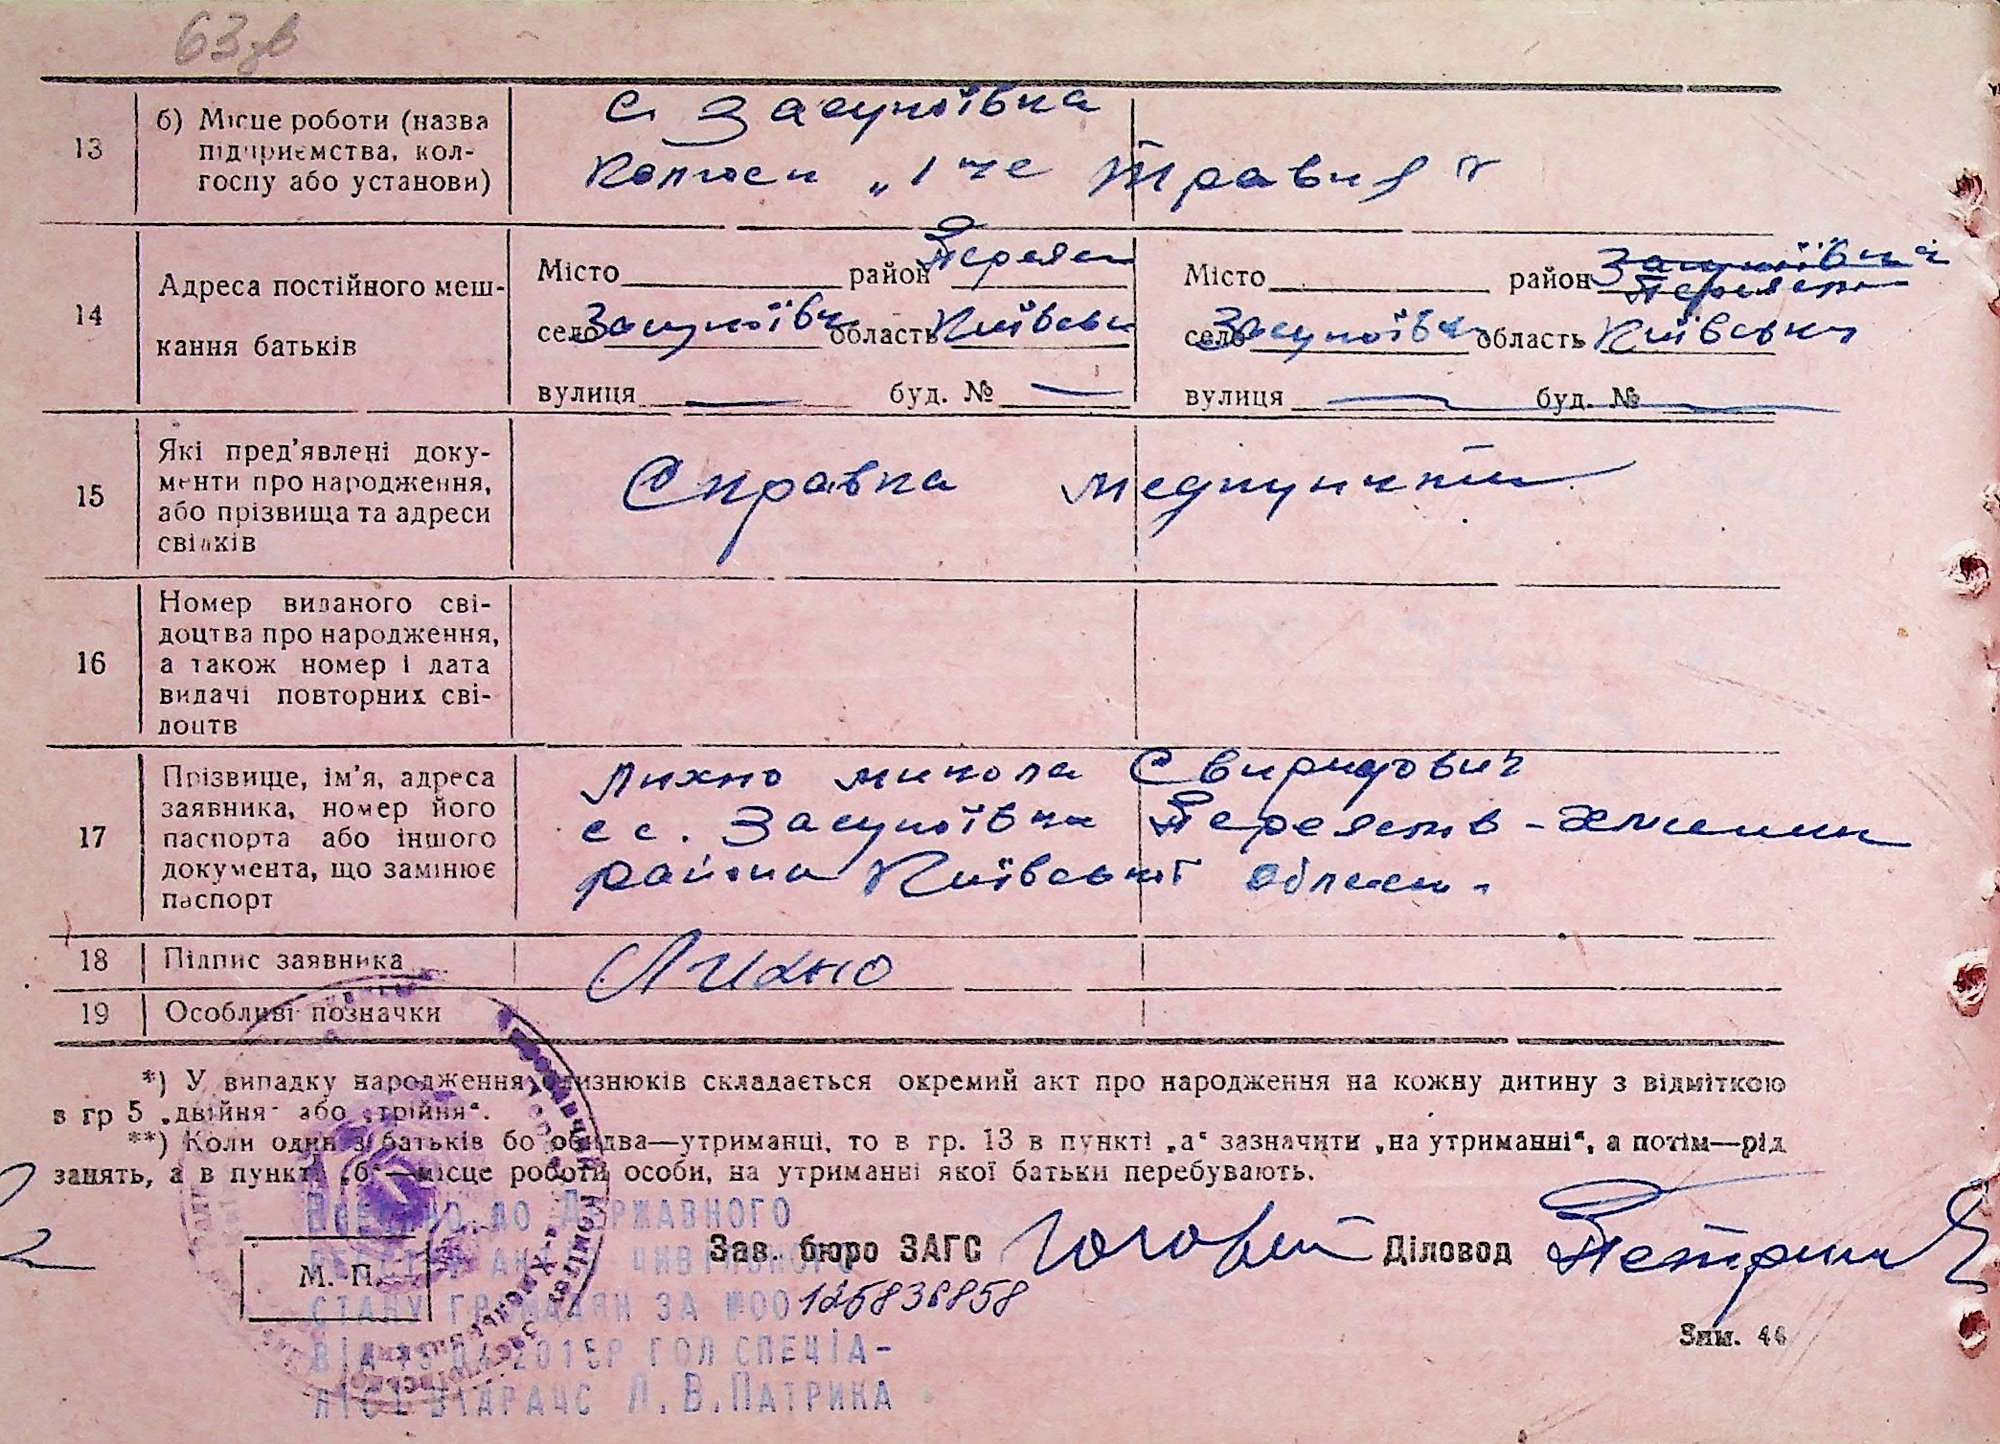 63 зв
13
б) Місце роботи (назва підприємства, колгоспу або установи)
с. Засупоївка
Колгосп „1 ше Травня"
14
Адреса постійного мешкання батьків
Місто район Переяс
село Засупоївк область Київськ
вулиця — буд. № —
Місто район Засупоївка Переяслав
село Засупоївк область Київська
вулиця — буд. № —
15
Які пред'явлені документи про народження, або прізвища та адреси свідків
Справка медпункта
16
Номер виданого свідоцтва про народження, а також номер і дата видачі повторних свідоцтв
17
Прізвище, ім'я, адреса заявника, номер його паспорта або іншого документа, що замінює паспорт
Лихно микола Свиридович
с. Засупоївка Переяслав-Хмельниц
района Київської области.
18
Підпис заявника
Лихно
19
Особливі позначки
*) У випадку народження близнюків складається окремий акт про народження на кожну дитину з відміткою
в гр 5 „двійня" або „трійня".
**) Коли один з батьків бо обидва—утриманці, то в гр. 13 в пункті „а" зазначити „на утриманні", а потім—рід
занять, а в пункті „б"—місце роботи особи, на утриманні якої батьки перебувають.
М. П.
Зав. бюро ЗАГС
Діловод
Внесено до Державного
реєстру актів цивільного
стану громадян за №00125838858
від 13 04 2015р гол спеціа-
ліст відрацс Л.В.Патрика
Зам. 44